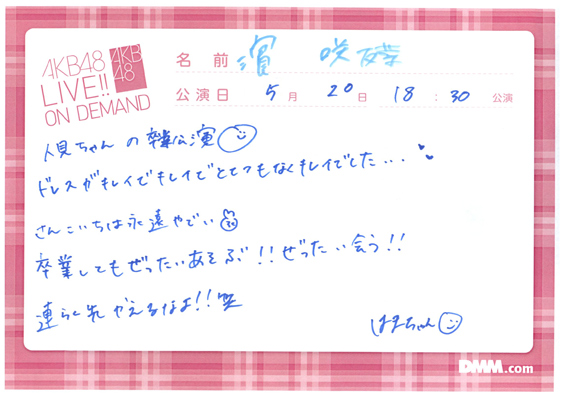 AKB48
LIVE!!
ON DEMAND
AKB
48
名前 濵 咲友菜
公演日 5月 20日 18:30 公演
人見ちゃんの卒業公演
ドレスがキレイでキレイでとてつもなくキレイでした...
さんこいちは永遠やでい
卒業してもぜったいあそぶ!!ぜったい会う!!
連らく先かえるなよ!!笑
はまちゃん
DMM.com